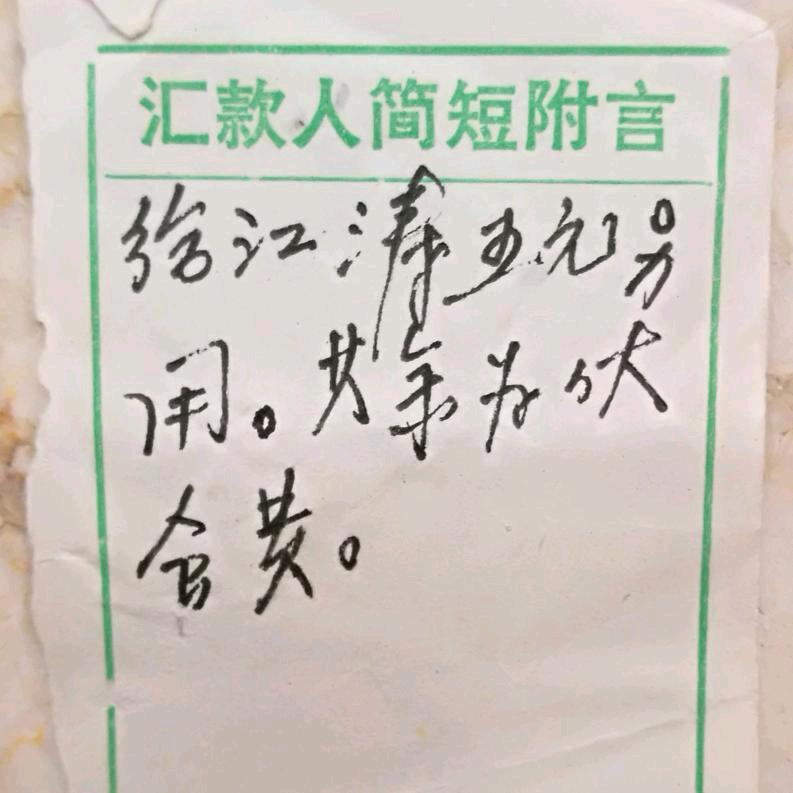 汇款人简短附言
给江涛五元另
用。其余为伙
食费。